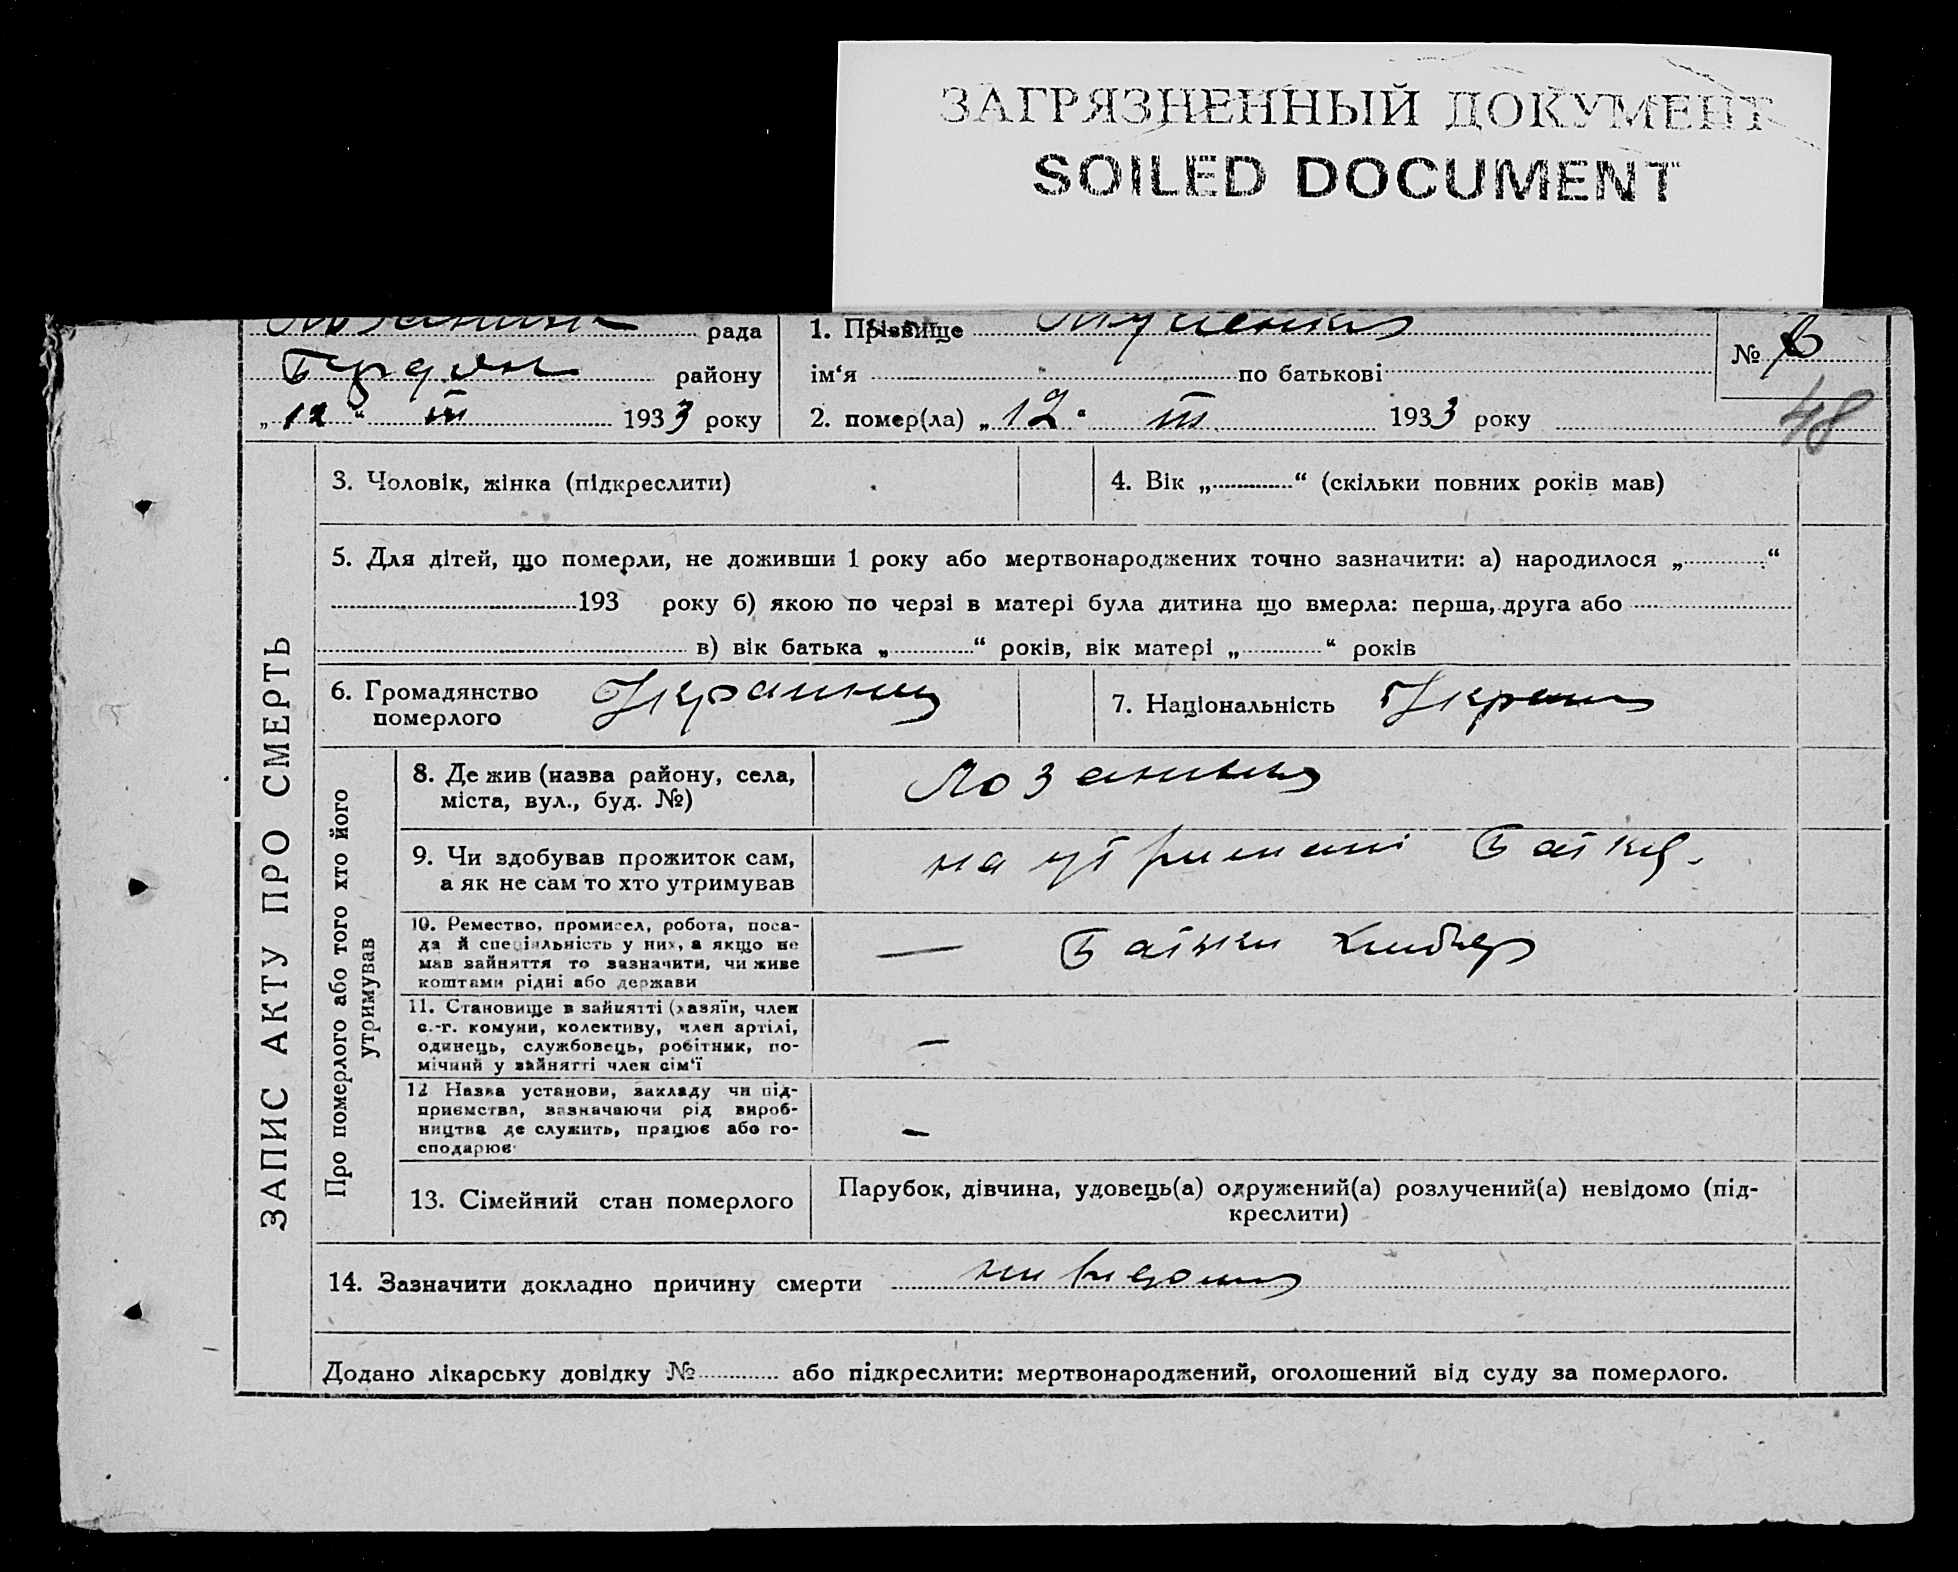 ЗАГРЯЗНЕННЫЙ ДОКУМЕНТ
SOILED DOCUMENT
рада
району
„12“ III 1933 року
1. Прізвище
ім‘я по батькові
2. помер(ла) „12“ III 1933 року
№
48
ЗАПИС АКТУ ПРО СМЕРТЬ
3. Чоловік, жінка (підкреслити)
4. Вік „ “ (скільки повних років мав)
5. Для дітей, що померли, не доживши 1 року або мертвонароджених точно зазначити: а) народилося „ “
193 року б) якою по черзі в матері була дитина що вмерла: перша, друга або
в) вік батька „ “ років, вік матері „ “ років
6. Громадянство
померлого
7. Національність
Про померлого або того хто його
утримував
8. Де жив (назва району, села,
міста, вул., буд. №)
9. Чи здобував прожиток сам,
а як не сам то хто утримував
на утриманні Батька.
10. Ремество, промисел, робота, поса-
да й спеціяльність у них, а якщо не
мав зайняття то зазначити, чи живе
коштами рідні або держави
— Батьки
11. Становище в зайнятті (хазяїн, член
с.-г. комуни, колективу, член артілі,
одинець, службовець, робітник, по-
мічний у зайнятті член сім‘ї
—
12 Назва установи, закладу чи під-
приємства, зазначаючи рід вироб-
ництва де служить, працює або го-
сподарює
—
13. Сімейний стан померлого
Парубок, дівчина, удовець(а) одружений(а) розлучений(а) невідомо (під-
креслити)
14. Зазначити докладно причину смерти
Додано лікарську довідку № або підкреслити: мертвонароджений, оголошений від суду за померлого.